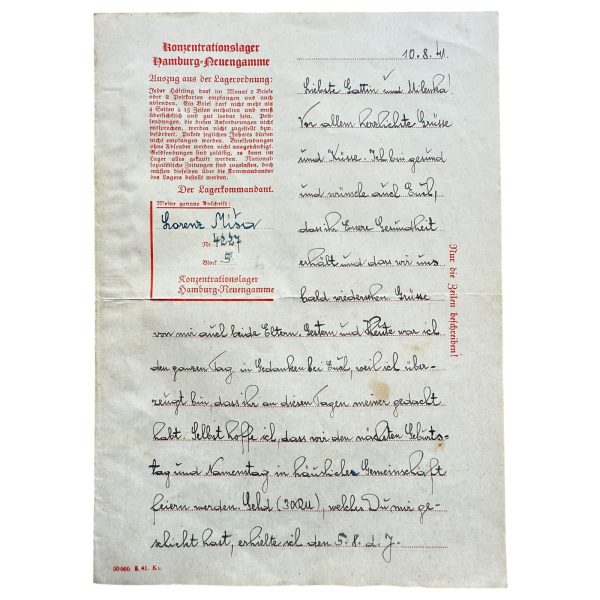 Konzentrationslager
Hamburg-Neuengamme
Auszug aus der Lagerordnung:
Jeder Häftling darf im Monat 2 Briefe
oder 2 Postkarten empfangen und auch
absenden. Ein Brief darf nicht mehr als
4 Seiten à 15 Zeilen enthalten und muß
übersichtlich und gut lesbar sein. Post-
sendungen, die diesen Anforderungen nicht
entsprechen, werden nicht zugestellt bzw.
befördert. Pakete jeglichen Inhalts dürfen
nicht empfangen werden. Briefsendungen
ohne Absender werden nicht ausgehändigt.
Geldsendungen sind zulässig, es kann im
Lager alles gekauft werden. National-
sozialistische Zeitungen sind zugelassen, doch
müssen dieselben über die Kommandantur
des Lagers bestellt werden.
Der Lagerkommandant.
Meine genaue Anschrift:
Lorenz Miša
Nr. 4227
Block 5
Konzentrationslager
Hamburg-Neuengamme
10.8.41.
Liebste Gattin und Milenka!
Vor allem herzlichste Grüsse
und Küsse. Ich bin gesund
und wünsche auch Euch,
dass ihr Euere Gesundheit
erhält und dass wir uns
bald wiedersehen. Grüsse
von mir auch beide Eltern. Gestern und heute war ich
den ganzen Tag in Gedanken bei Euch, weil ich über-
zeugt bin, dass ihr an diesen Tagen meiner gedacht
habt. Selbst hoffe ich, dass wir den nächsten Geburts-
tag und Namenstag in häuslicher Gemeinschaft
feiern werden. Geld (30RM), welches Du mir ge-
schickt hast, erhielte ich den 5.8. d. J.
Nur die Zeilen beschreiben!
50000 3. 41. Ku.